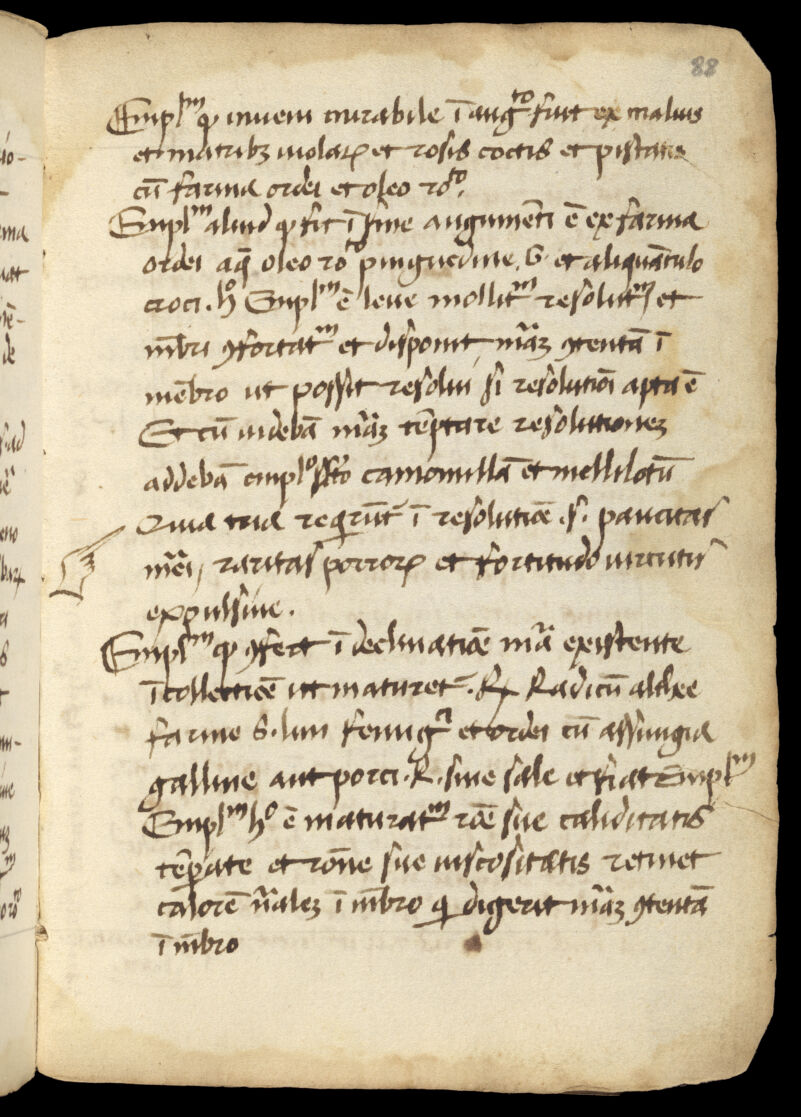 88
Empl^m qͣ inueni mirabile ī augͭo fuit ex maluis
et matribꝫ uiolaꝝ et rosis coctis et pistatis
cū farina ordei et oleo ro^o.
Empl^m aliud qͣ fit ī fine augumēti ē ex farina
ordei aq̄ oleo ro^o pinguedine .G. et aliquātulo
croci. h^o Empl^m ē leue mollit^m resolut^m et
mēbri ꝯfortat^m et disponit māꝫ ꝯtentā ī
mēbro ut possit resolui si resolutiōi apta ē
Et cū uidebā māꝫ tēptare resolutionēꝫ
addebā empl^o ss^to camomillā et mellilotū
Quia tria reqͥrūt^r ī resolutiōe .s. paucitas
māei, raritas porrorꝝ et fortitudo uirtutis
expulsiue.
Empl^m qͣ ꝯfert ī declinatiōe mā existente
ī collectiōe ut maturet^r. ℞ Radicū althee
farine S. lini fenugͬ et ordei cū assungia
galline aut porci. R. sine sale et fiat Empl^m
Empl^m h^o ē maturat^m rōe sue caliditatis
tēpate et rōne sue uiscositatis retinet
calorē nāleꝫ ī mēbro qͥ digerit māꝫ ꝯtentā
ī mēbro